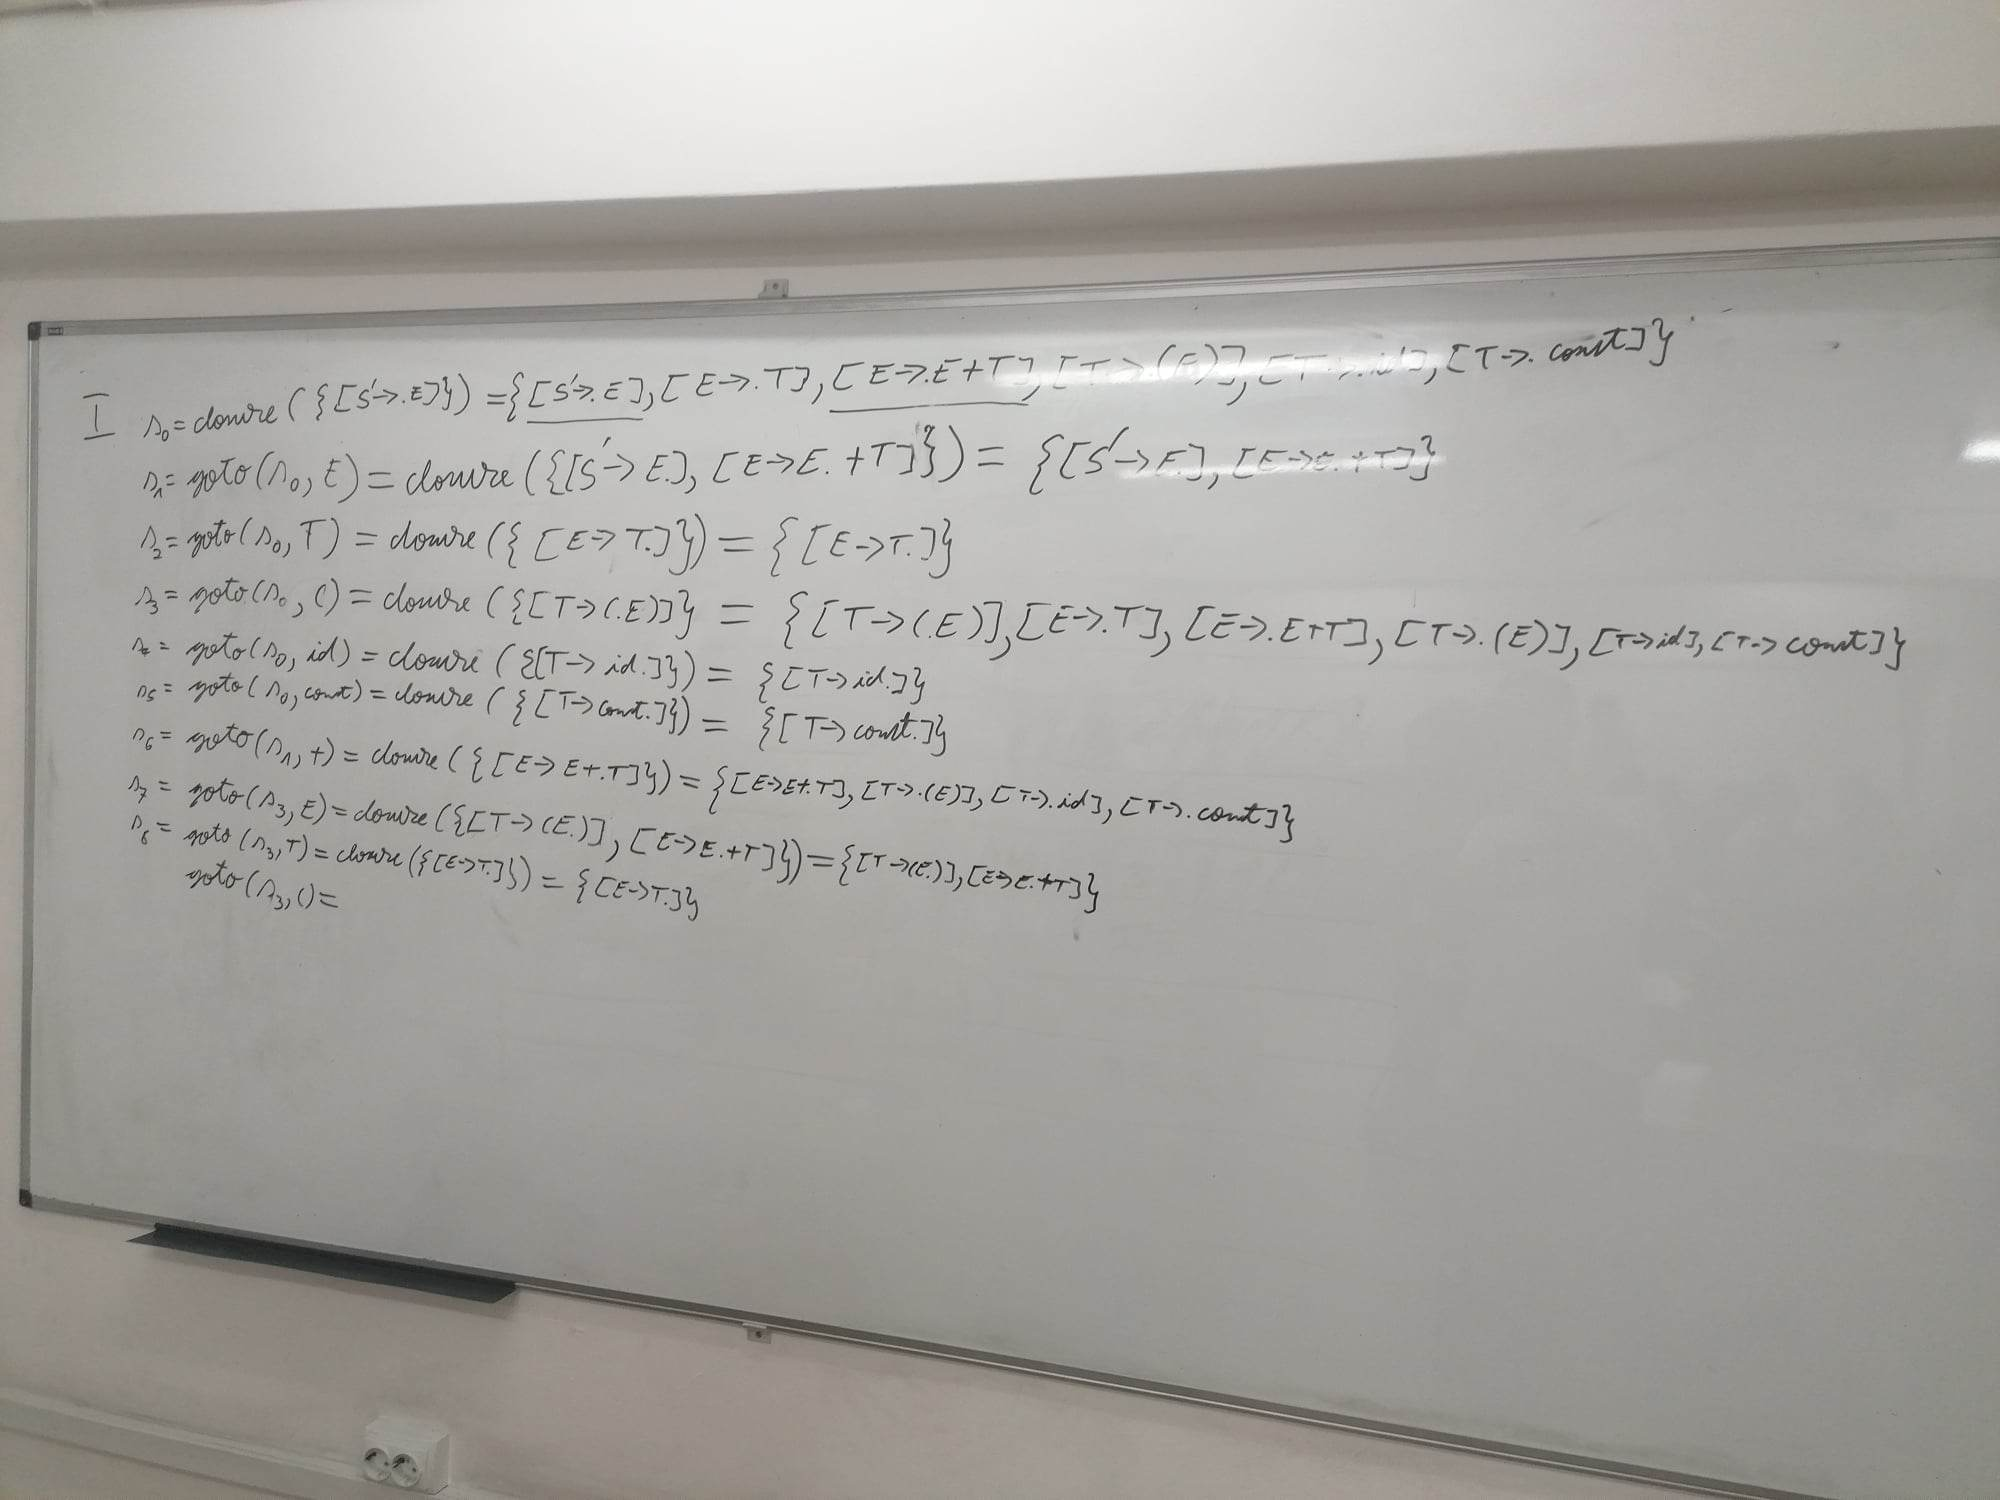 I s₀ = closure ({[S'->.E]}) = {[S'->.E], [E->.T], [E->.E+T], [T->.(E)], [T->.id], [T->.const]}
s₁ = goto(s₀, E) = closure ({[S'->E.], [E->E.+T]}) = {[S'->E.], [E->E.+T]}
s₂ = goto(s₀, T) = closure ({[E->T.]}) = {[E->T.]}
s₃ = goto(s₀, () = closure ({[T->(.E)]} = {[T->(.E)], [E->.T], [E->.E+T], [T->.(E)], [T->.id], [T->.const]}
s₄ = goto(s₀, id) = closure ({[T->id.]}) = {[T->id.]}
s₅ = goto(s₀, const) = closure ({[T->const.]}) = {[T->const.]}
s₆ = goto(s₁, +) = closure ({[E->E+.T]}) = {[E->E+.T], [T->.(E)], [T->.id], [T->.const]}
s₇ = goto(s₃, E) = closure ({[T->(E.)], [E->E.+T]}) = {[T->(E.)], [E->E.+T]}
s₈ = goto(s₃, T) = closure ({[E->T.]}) = {[E->T.]}
goto(s₃, () =